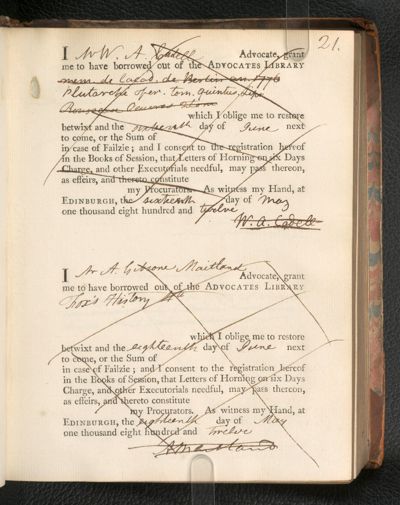 21.
I Mr W. A. Cadell Advocate, grant
me to have borrowed out of the ADVOCATES LIBRARY
mem. de l'acad. de Berlin an. 1776
Plutarchi Oper. tom. quintus,
which I oblige me to restore
betwixt and the sixteenth day of June next
to come, or the Sum of
in case of Failzie; and I consent to the registration hereof
in the Books of Session, that Letters of Horning on six Days
Charge, and other Executorials needful, may pass thereon,
as effeirs, and thereto constitute
my Procurators. As witness my Hand, at
EDINBURGH, the sixteenth day of May
one thousand eight hundred and twelve
W. A. Cadell
I Mr A. Gibsone Maitland Advocate, grant
me to have borrowed out of the ADVOCATES LIBRARY
Fox's History 4to
which I oblige me to restore
betwixt and the eighteenth day of June next
to come, or the Sum of
in case of Failzie; and I consent to the registration hereof
in the Books of Session, that Letters of Horning on six Days
Charge, and other Executorials needful, may pass thereon,
as effeirs, and thereto constitute
my Procurators. As witness my Hand, at
EDINBURGH, the eighteenth day of May
one thousand eight hundred and twelve
A Maitland